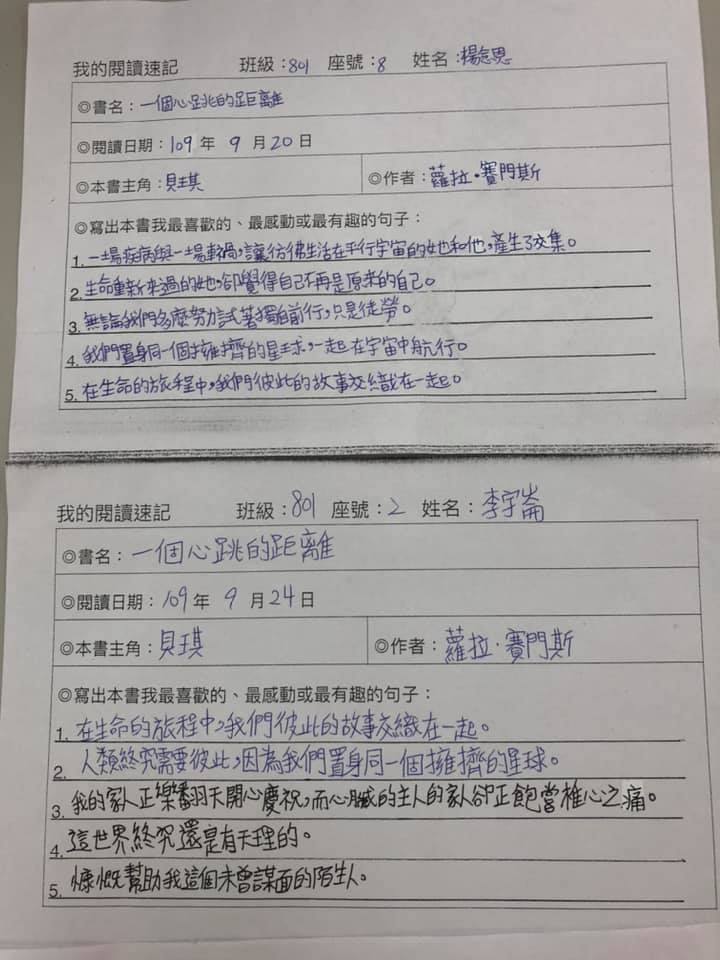 我的閱讀速記 班級：801 座號：8 姓名：楊念恩
◎書名：一個心跳的距離
◎閱讀日期：109年 9月20日
◎本書主角：貝琪 ◎作者：蘿拉·賽門斯
◎寫出本書我最喜歡的、最感動或最有趣的句子：
1. 一場疾病與一場車禍，讓彷彿生活在平行宇宙的她和他，產生了交集。
2. 生命重新來過的她，卻覺得自己不再是原來的自己。
3. 無論我們多麼努力試著獨自前行，只是徒勞。
4. 我們置身同一個擁擠的星球，一起在宇宙中航行。
5. 在生命的旅程中，我們彼此的故事交織在一起。
我的閱讀速記 班級：801 座號：2 姓名：李宇崙
◎書名：一個心跳的距離
◎閱讀日期：109年 9月24日
◎本書主角：貝琪 ◎作者：蘿拉·賽門斯
◎寫出本書我最喜歡的、最感動或最有趣的句子：
1. 在生命的旅程中，我們彼此的故事交織在一起。
2. 人類終究需要彼此，因為我們置身同一個擁擠的星球。
3. 我的家人正樂翻天開心慶祝，而心臟的主人的家人卻正飽嘗椎心之痛。
4. 這世界終究還是有天理的。
5. 慷慨幫助我這個未曾謀面的陌生人。